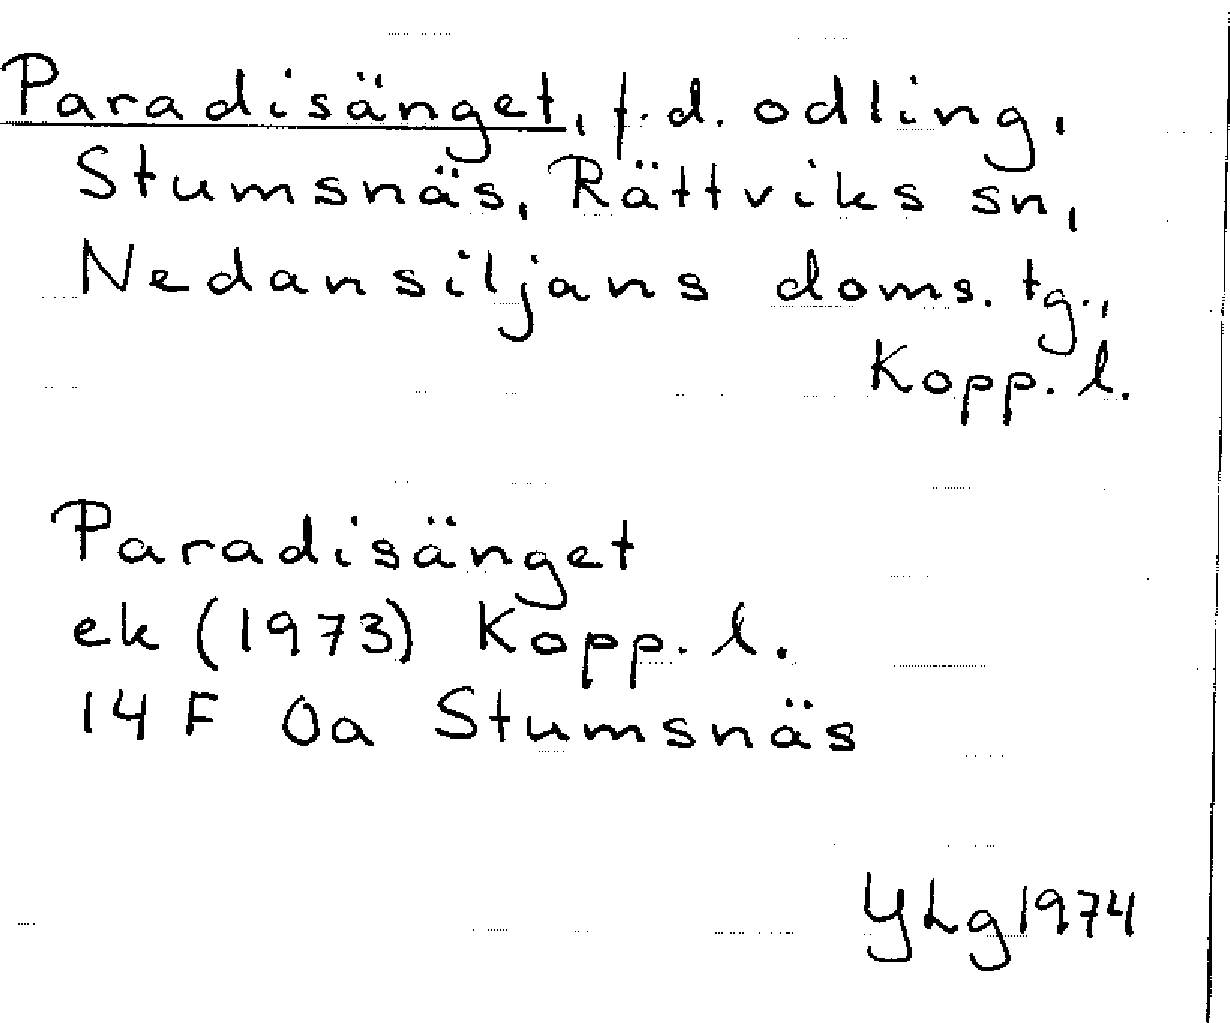 Paradisänget, f.d. odling,
Stumsnäs, Rättviks sn,
Nedansiljans doms. tg.,
Kopp. l.
Paradisänget
ek (1973) Kopp. l.
14 F 0a Stumsnäs
YLg 1974